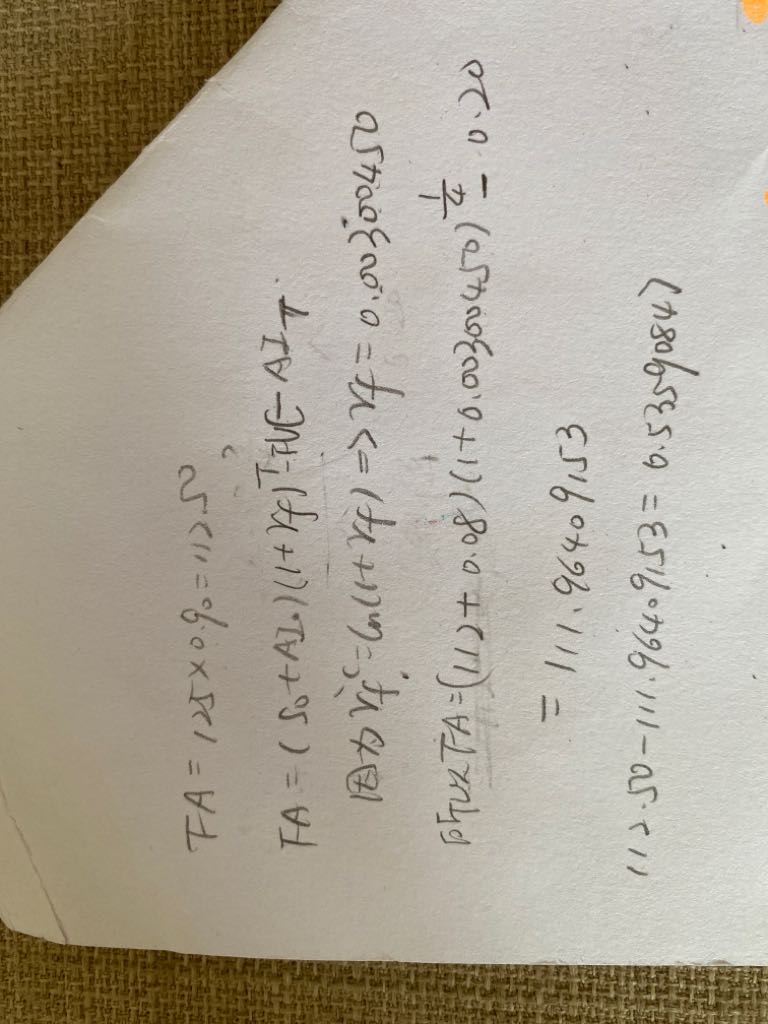 FA = 125 × 0.90 = 112.50
FA = (S₀ + AI₀)(1 + rf)ᵀ - FVC - AI_T.
因为 rf^c = ln(1 + rf) => rf = 0.00300450
所以 FA = (112 + 0.08)(1 + 0.00300450)^(1/4) - 0.20
= 111.96409153
112.50 - 111.96409153 = 0.53590847